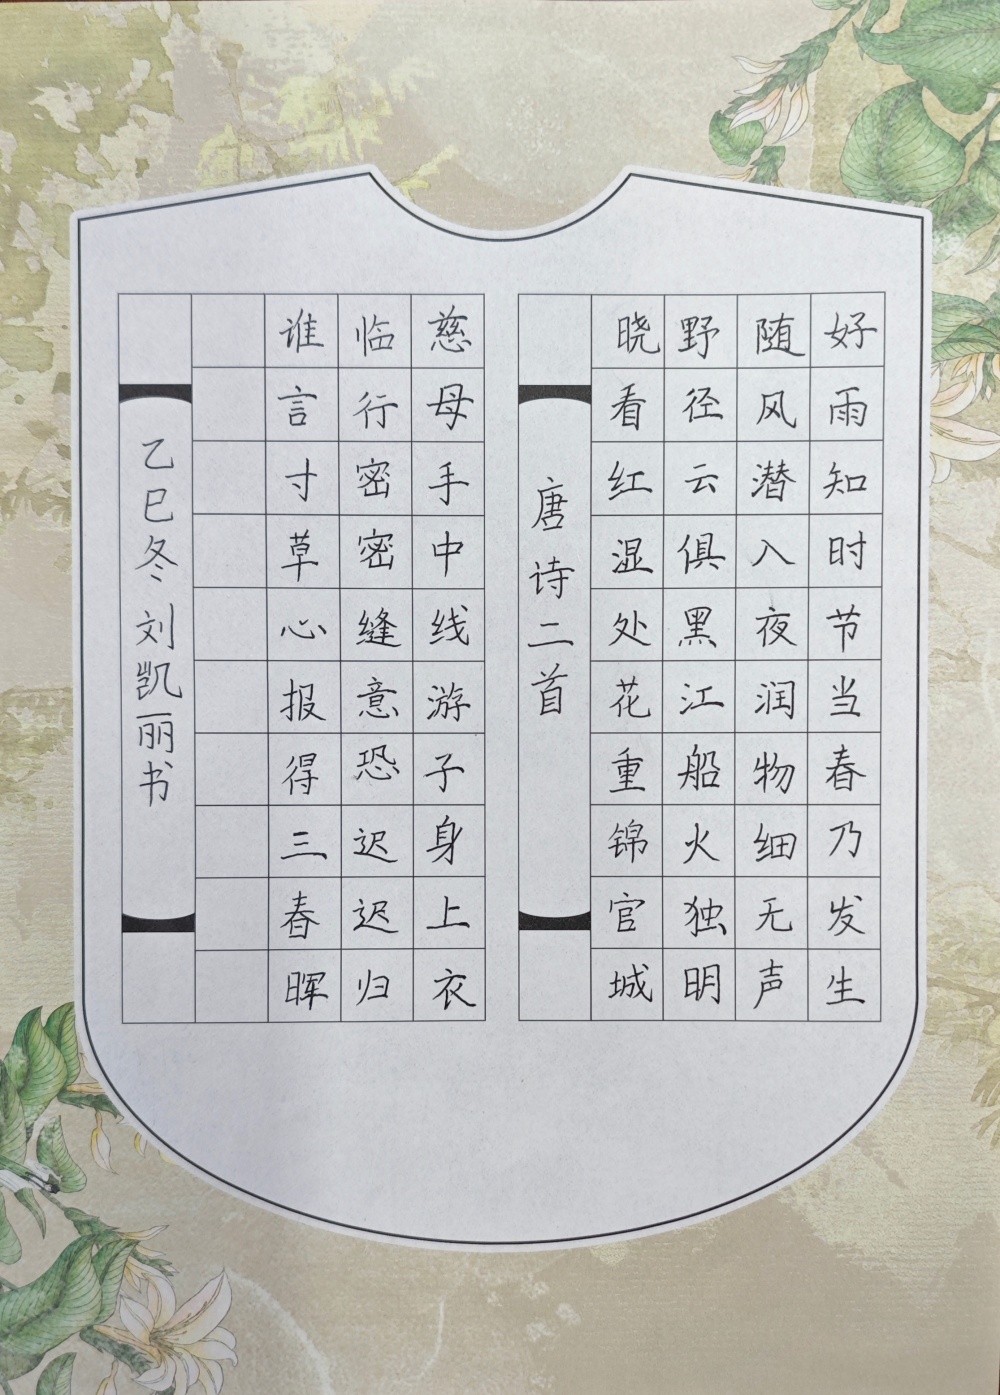 好雨知时节当春乃发生
随风潜入夜润物细无声
野径云俱黑江船火独明
晓看红湿处花重锦官城
唐诗二首
慈母手中线游子身上衣
临行密密缝意恐迟迟归
谁言寸草心报得三春晖
乙巳冬刘凯丽书